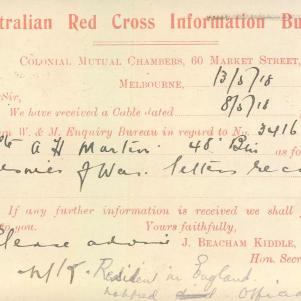 tralian Red Cross Information Bu
COLONIAL MUTUAL CHAMBERS, 60 MARKET STREET,
MELBOURNE, 13/5/18
Sir,
We have received a Cable dated 8/5/18
om W. & M. Enquiry Bureau in regard to No. 3416
Pte A H Martin 48 Btn as fo
of War letters rec
If any further information is received we shall
to you. Yours faithfully,
Please advise J. BEACHAM KIDDLE,
Hon. Secr
Resident in England
notified Offic